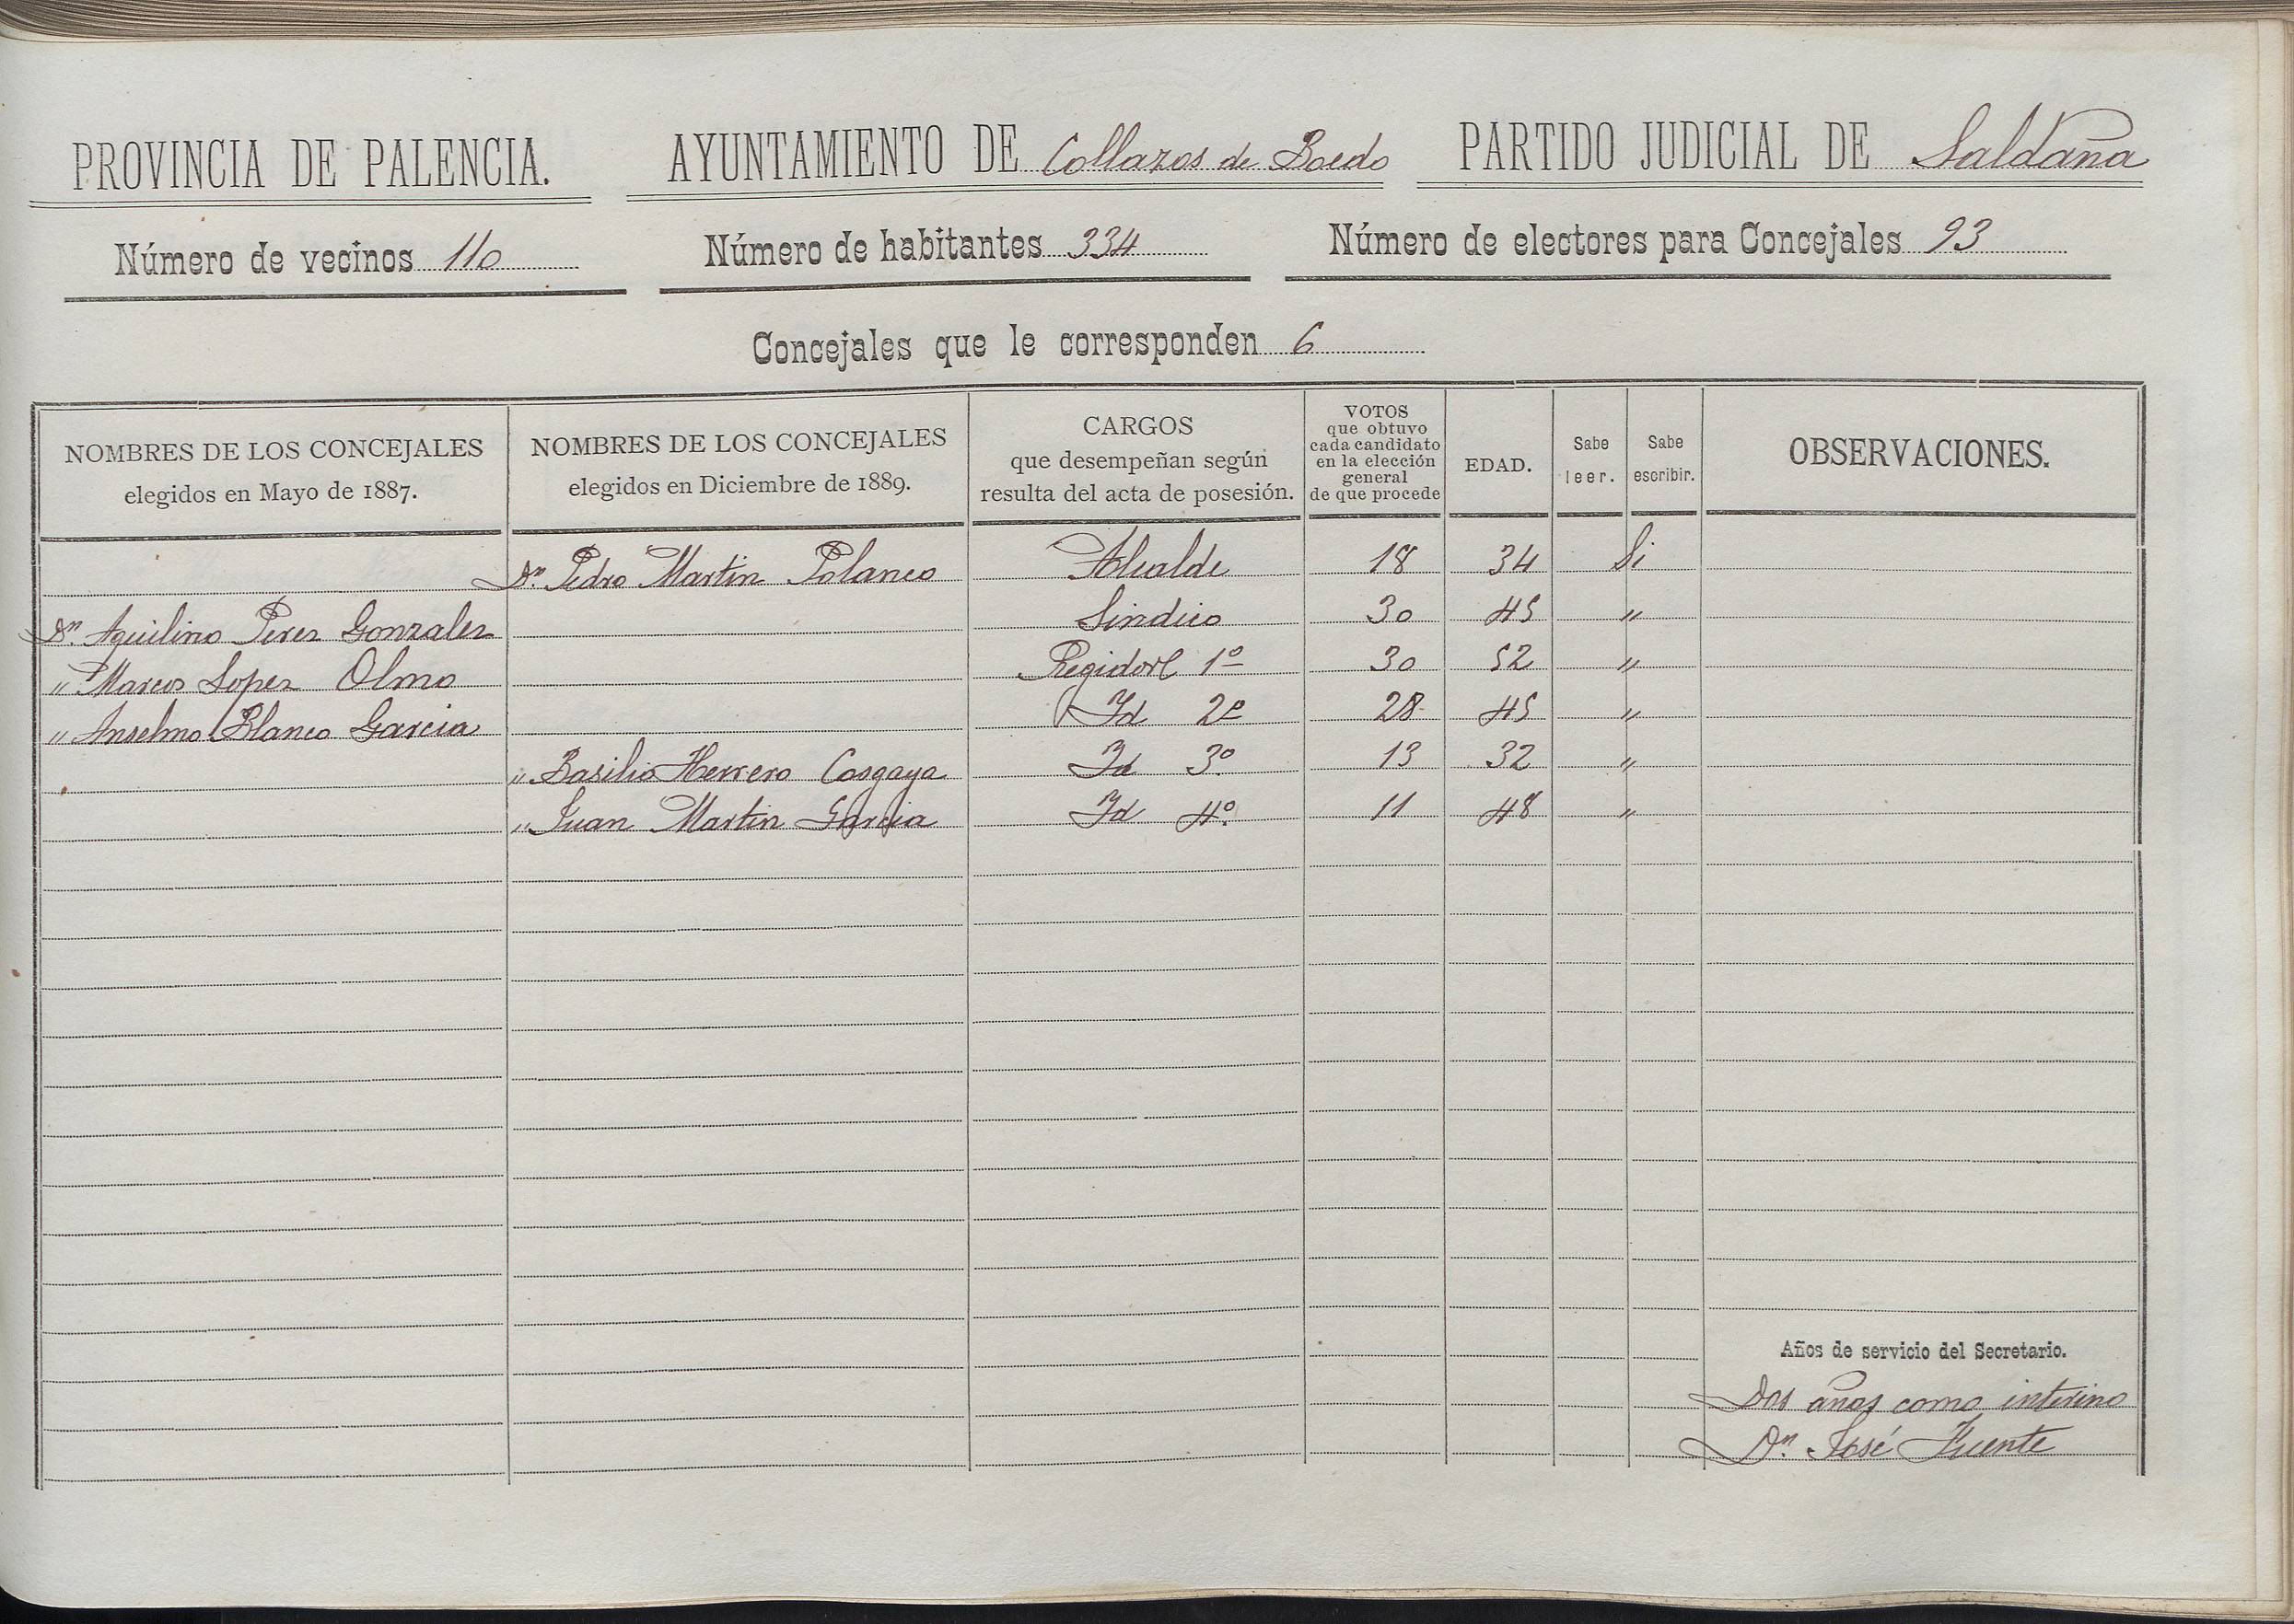 PROVINCIA DE PALENCIA. AYUNTAMIENTO DE Collazos de Boedo PARTIDO JUDICIAL DE Saldaña
Número de vecinos 110 Número de habitantes 334 Número de electores para Concejales 93
Concejales que le corresponden 6
NOMBRES DE LOS CONCEJALES elegidos en Mayo de 1887. NOMBRES DE LOS CONCEJALES elegidos en Diciembre de 1889. CARGOS que desempeñan según resulta del acta de posesión. VOTOS que obtuvo cada candidato en la elección general de que procede EDAD. Sabe leer. Sabe escribir. OBSERVACIONES.
Dn. Pedro Martin Polanco Alcalde 18 34 Si
Dn. Aquilino Perez Gonzalez Sindico 30 45 "
" Marcos Lopez Olmo Regidor 1º 30 52 "
" Anselmo Blanco Garcia Id 2º 28 45 "
" Basilio Herrero Cosgaya Id 3º. 13 32 "
" Juan Martin Garcia Id 4º. 11 48 "
Años de servicio del Secretario.
Dos años como interino
Dn. José Fuente